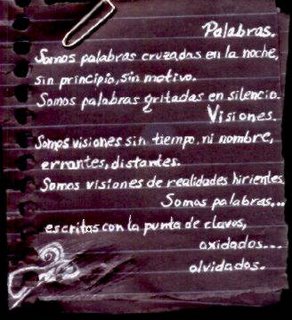 Palabras.
Somos palabras cruzadas en la noche,
sin principio, sin motivo.
Somos palabras gritadas en silencio.
Visiones.
Somos visiones sin tiempo, ni nombre,
errantes, distantes.
Somos visiones de realidades hirientes.
Somos palabras...
escritas con la punta de clavos,
oxidados...
olvidados.